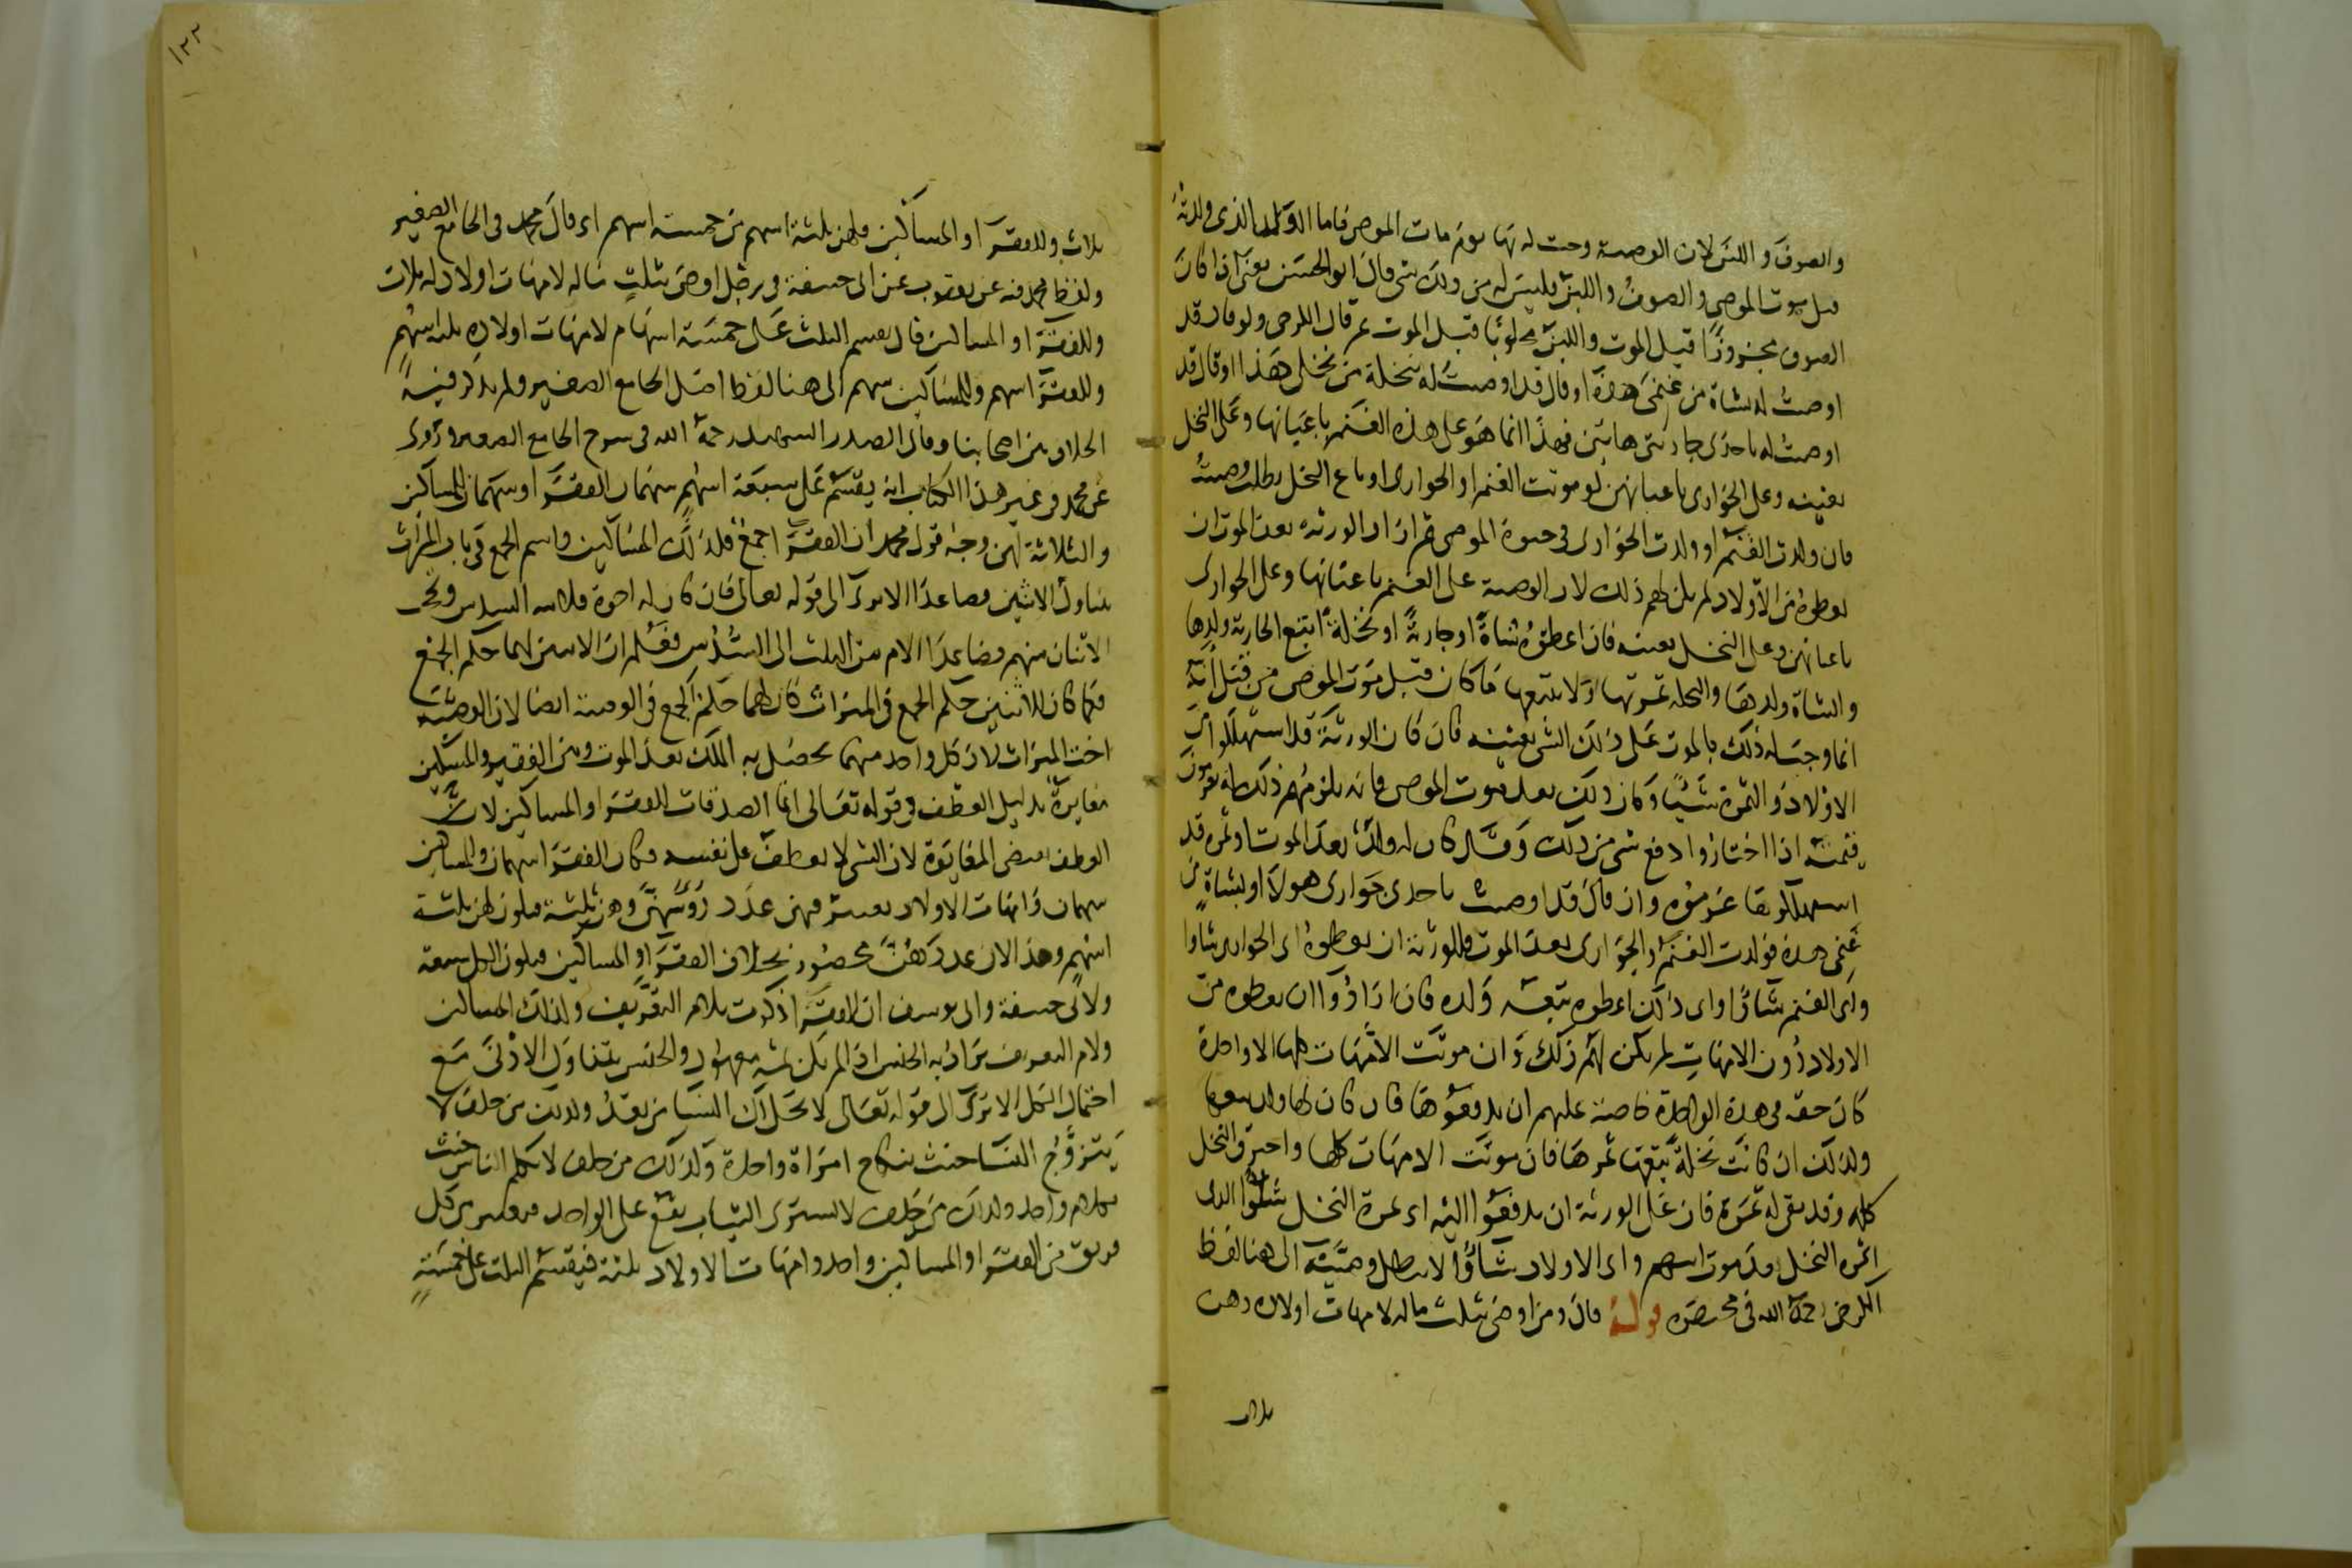 والصوف واللبن لان الوصية وجبت له بها يوم مات الموصى فاما الولد الذى ولدته
قبل موت الموصى والصوف واللبن فليس له من ذلك شى قال ابو الحسن يعنى اذا كان
الصوف مجزوزا قبل الموت واللبن محلوبا قبل الموت ثم قال الكرخى ولو قال قد
اوصيت له بشاة من غنمى هذه او قال قد اوصيت له بنخلة من نخلى هذا او قال قد
اوصيت له باحدى جاريتى هاتين فهذا انما هو على هذه الغنم باعيانها وعلى النخل
بعينه وعلى الجوارى باعيانهن لو موتت الغنم او الجوارى او باع النخل بطلت وصيته
فان ولدت الغنم او ولدت الجوارى فى حيوة الموصى ثم اراد الورثة بعد الموت ان
يعطوه من الاولاد لم يكن لهم ذلك لان الوصية على الغنم باعيانها وعلى الجوارى
باعيانهن وعلى النخل بعينه فان اعطوه شاة او جارية او نخلة اتبع الجارية ولدها
والشاة ولدها والنخلة ثمرتها ولا يتبعها ما كان قبل موت الموصى من قبل انه
انما وجب له ذلك بالموت على ذلك الشى بعينه فان كان الورثة قد استهلكوا
الاولاد والثمرة شيئا وكان ذلك بعد موت الموصى فانه يلزمهم ذلك انه يغرمون
قيمته اذا اختاروا دفع شى من ذلك وقال كان له ولد بعد الموت او ثمرة قد
استهلكوها غرموه وان قال قد اوصيت باحدى جوارى هولا او بشاة من
غنمى هذه فولدت الغنم والجوارى بعد الموت فللورثة ان يعطوه اى الجوارى شاوا
واى الغنم شاوا واى ذلك اعطوه تبعه ولده فان ارادوا ان يعطوه من
الاولاد دون الامهات لم يكن لهم ذلك وان موتت الامهات كلها الا واحدة
كان حقه فى هذه الواحدة خاصة عليهم ان يدفعوها فان كان لها ولد تبعها
وكذلك ان كانت نخلة تبعها ثمرها فان موتت الامهات كلها واحترق النخل
كله وقد بقى له ثمرة فان على الورثة ان يدفعوا اليه اى ثمرة النخل شاوا الذى
اثمره النخل بعد موت ابيهم واى الاولاد شاوا لا تبطل وصيته الى هنا لفظ
الكرخى رحمه الله فى مختصره قوله قال ومن اوصى بثلث ماله لامهات اولاده وهن
ثلاث
١٢٣
ثلاث وللفقرا والمساكين فلهن ثلثة اسهم من خمسة اسهم اى قال محمد فى الجامع الصغير
ولفظ محمد فيه عن يعقوب عن ابى حنيفة فى رجل اوصى بثلث ماله لامهات اولاد له ثلاث
وللفقرا والمساكين قال يقسم الثلث على خمسة اسهام لامهات اولاده ثلثة اسهم
وللفقرا سهم وللمساكين سهم الى هنا لفظ اصل الجامع الصغير ولم يذكر فيه
الخلاف بين اصحابنا وقال الصدر الشهيد رحمه الله فى شرح الجامع الصغير وروى
عن محمد فى غير هذا الكتاب انه يقسم على سبعة اسهم سهمان للفقرا وسهمان للمساكين
والثلاثة لهن وجه قول محمد ان الفقرا جمع وكذلك المساكين واسم الجمع فى باب الميراث
يتناول الاثنين فصاعدا الا يرى الى قوله تعالى فان كان له اخوة فلامه السدس ويحجب
الاثنان منهم فصاعدا الام من الثلث الى السدس فعلم ان الاثنين لهما حكم الجمع
فكما كان للاثنين حكم الجمع فى الميراث كان لهما حكم الجمع فى الوصية ايضا لان الوصية
اخت الميراث لان كل واحد منهما يحصل به الملك بعد الموت وبين الفقير والمسكين
مغايرة بدليل العطف فى قوله تعالى انما الصدقات للفقرا والمساكين لان
العطف يقتضى المغايرة لان الشى لا يعطف على نفسه فكان للفقرا سهمان وللمساكين
سهمان وامهات الاولاد يعتبر فيهن عدد روسهن وهن ثلثة فيكون لهن ثلثة
اسهم وهذا لان عددهن محصور بخلاف الفقرا والمساكين فيكون الكل سبعة
ولابى حنيفة وابى يوسف ان الفقرا ذكرت بلام التعريف وكذلك المساكين
ولام التعريف يراد به الجنس اذا لم يكن ثمة معهود والجنس يتناول الادنى مع
احتمال الكل الا ترى الى قوله تعالى لا يحل لك النسا من بعد وكذلك من حلف لا
يتزوج النسا حنث بنكاح امراة واحدة وكذلك من حلف لا يكلم الناس حنث
بكلام واحد وكذلك من حلف لا يشترى الثياب يقع على الواحد فيعتبر من كل
فريق من الفقرا والمساكين واحد وامهات الاولاد ثلثة فيقسم الثلث على خمسة